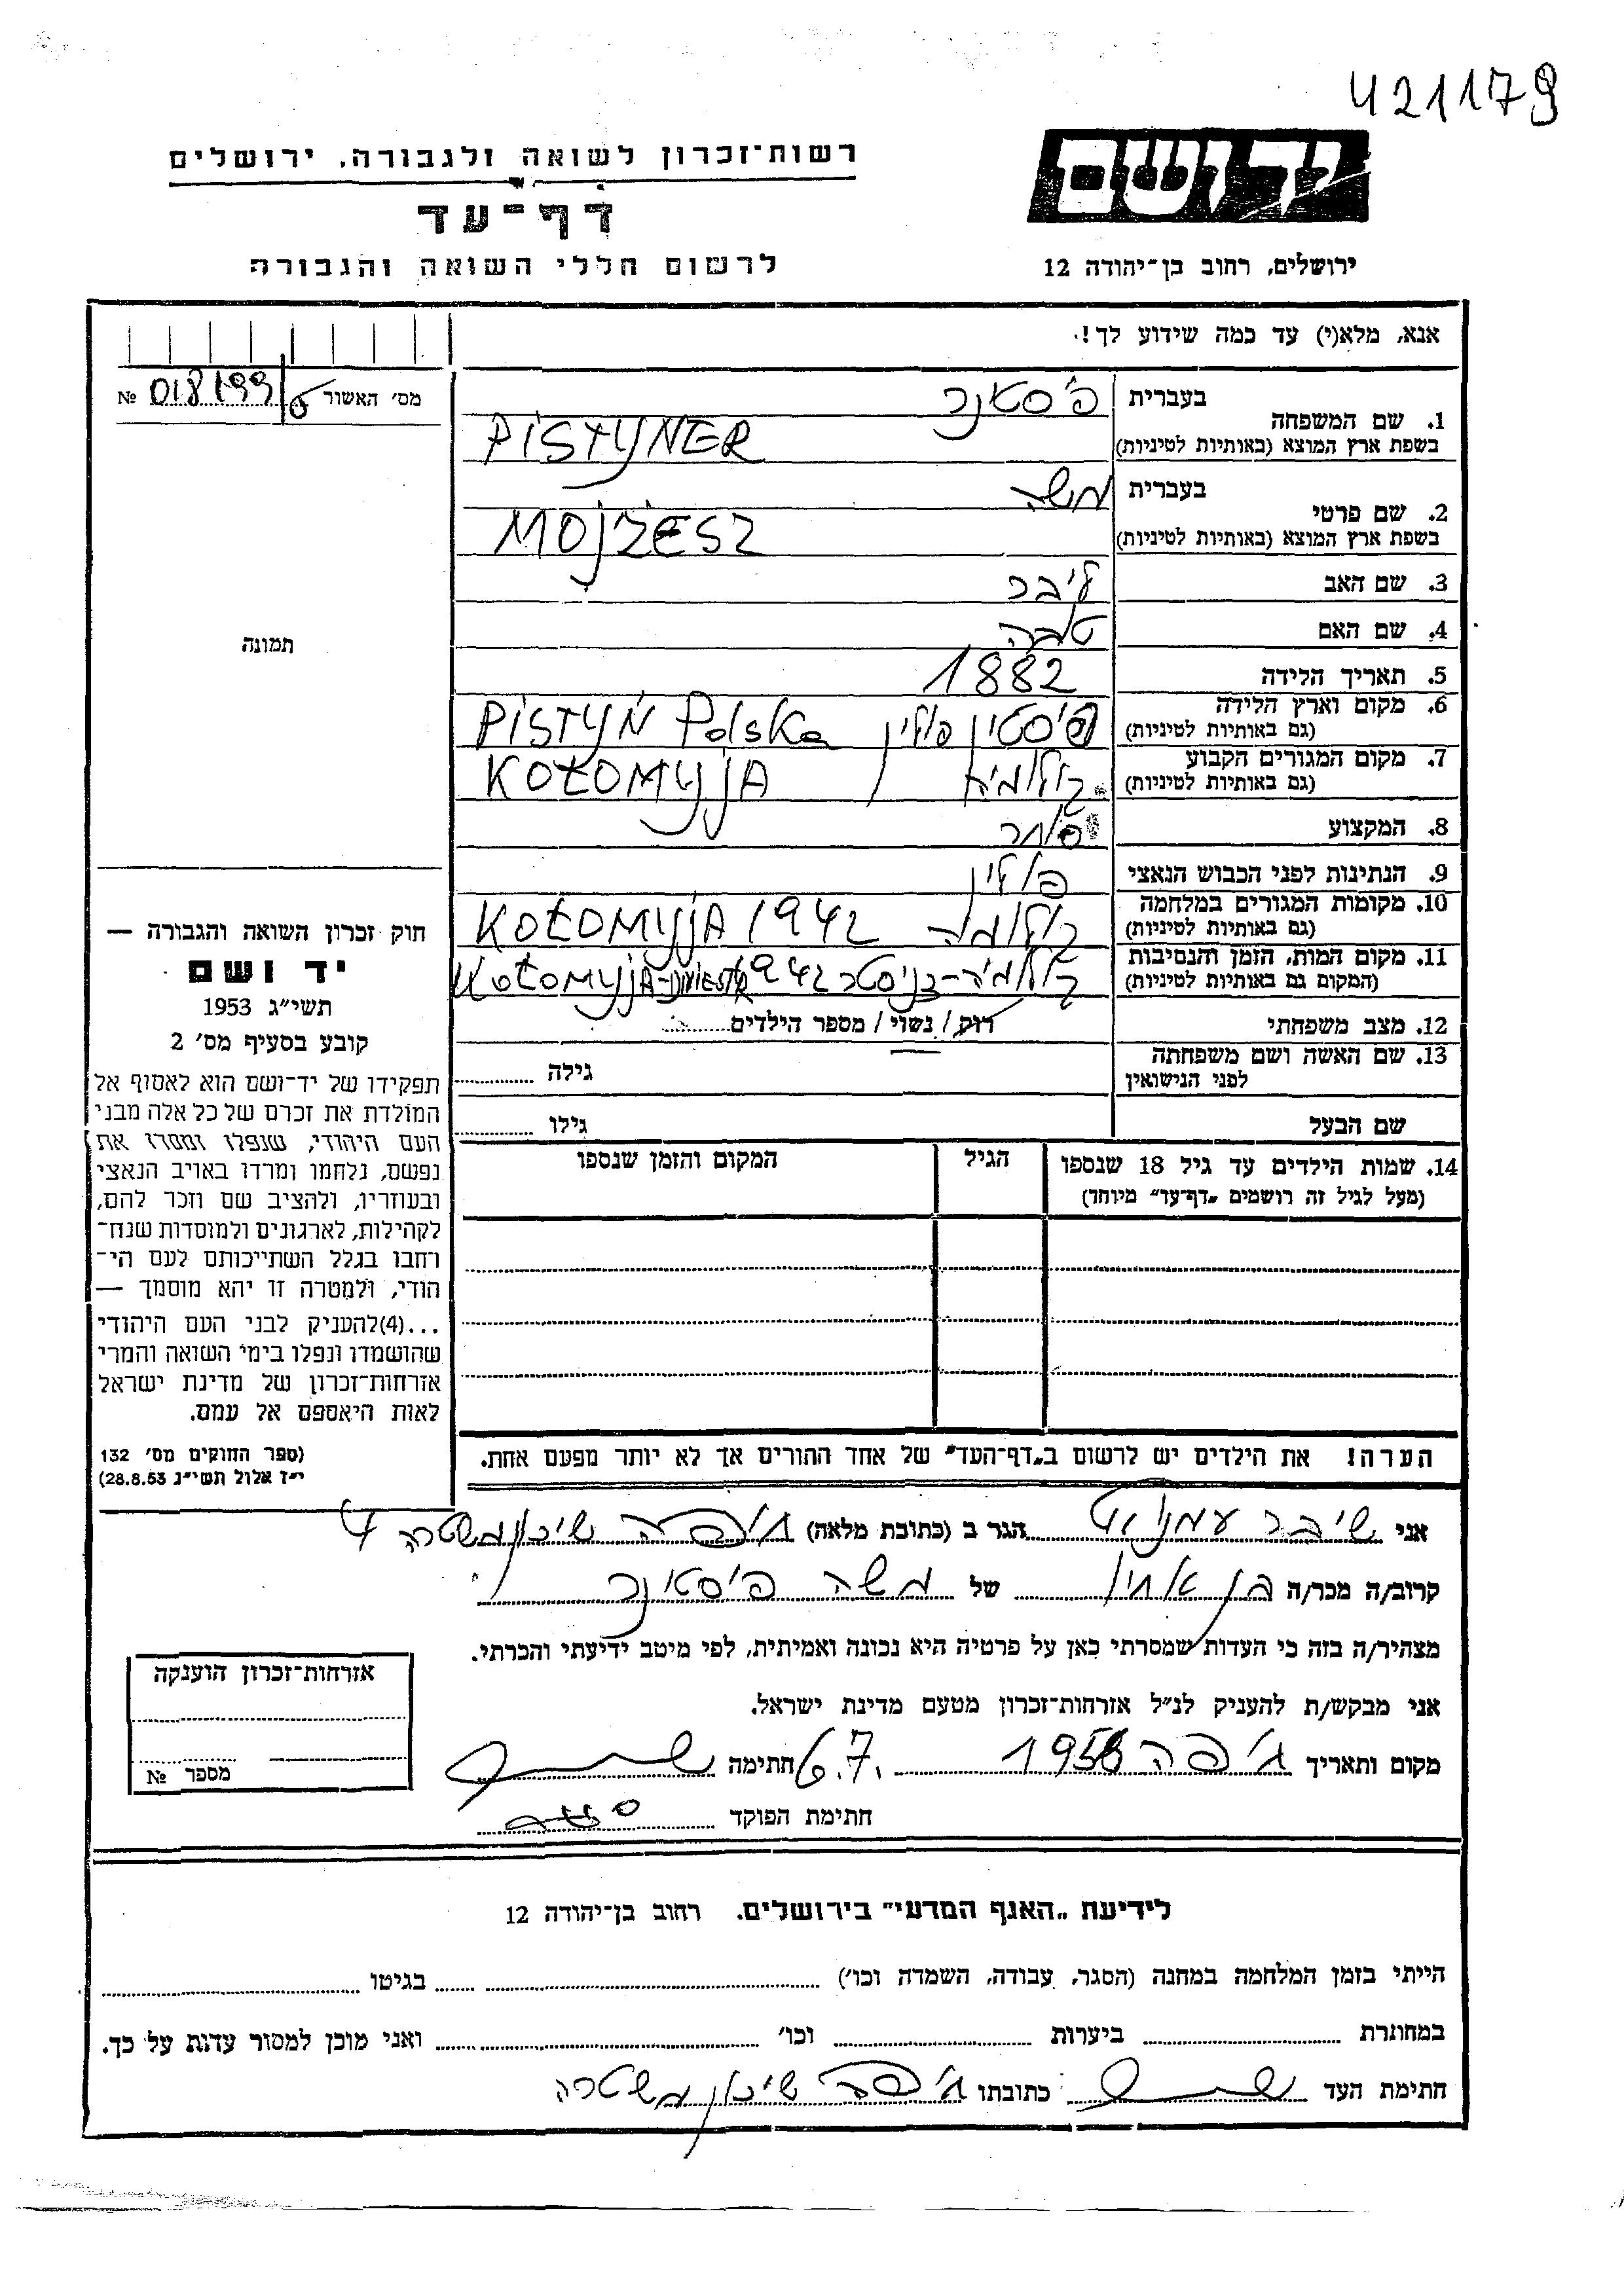 421179
יד ושם
רשות־זכרון לשואה ולגבורה, ירושלים
דף־עד
לרשום חללי השואה והגבורה
ירושלים, רחוב בן־יהודה 12
אנא, מלא(י) עד כמה שידוע לך!
מס׳ האשור № 018199
1. שם המשפחה בעברית פיסטנר
בשפת ארץ המוצא (באותיות לטיניות) PISTYNER
2. שם פרטי בעברית משה
בשפת ארץ המוצא (באותיות לטיניות) MOJZESZ
3. שם האב ליבר
4. שם האם טובה
5. תאריך הלידה 1882
6. מקום וארץ הלידה (גם באותיות לטיניות) פיסטין פולין PISTYŃ Polska
7. מקום המגורים הקבוע (גם באותיות לטיניות) קולומיה KOŁOMYJA
8. המקצוע סוחר
9. הנתינות לפני הכבוש הנאצי פולין
10. מקומות המגורים במלחמה (גם באותיות לטיניות) קולומיה KOŁOMYJA 1942
11. מקום המות, הזמן והנסיבות (המקום גם באותיות לטיניות) קולומיה 1942 KOŁOMYJA
12. מצב משפחתי רווק / נשוי / מספר הילדים
13. שם האשה ושם משפחתה לפני הנישואין גילה
שם הבעל גילו
14. שמות הילדים עד גיל 18 שנספו הגיל המקום והזמן שנספו
(מעל לגיל זה רושמים „דף־עד" מיוחד)
הערה! את הילדים יש לרשום ב„דף־העד" של אחד ההורים אך לא יותר מפעם אחת.
תמונה
חוק זכרון השואה והגבורה —
יד ושם
תשי״ג 1953
קובע בסעיף מס׳ 2
תפקידו של יד־ושם הוא לאסוף אל
המולדת את זכרם של כל אלה מבני
העם היהודי, שנפלו ומסרו את
נפשם, נלחמו ומרדו באויב הנאצי
ובעוזריו, ולהציב שם וזכר להם,
לקהילות, לארגונים ולמוסדות שנח־
רחבו בגלל השתייכותם לעם הי־
הודי, ולמטרה זו יהא מוסמך —
...(4)להעניק לבני העם היהודי
שהושמדו ונפלו בימי השואה והמרי
אזרחות־זכרון של מדינת ישראל
לאות היאספם אל עמם.
(ספר החוקים מס׳ 132
י״ז אלול תשי״ג 28.8.53)
אני שיבר עמנואל הגר ב (כתובת מלאה) חיפה שיכון משטרה 4
קרוב/ה מכר/ה בן אחין של משה פיסטנר
מצהיר/ה בזה כי העדות שמסרתי כאן על פרטיה היא נכונה ואמיתית, לפי מיטב ידיעתי והכרתי.
אני מבקש/ת להעניק לנ״ל אזרחות־זכרון מטעם מדינת ישראל.
מקום ותאריך חיפה 6.7.1956 חתימה
חתימת הפוקד
אזרחות־זכרון הוענקה
מספר №
לידיעת „האגף המדעי" בירושלים. רחוב בן־יהודה 12
הייתי בזמן המלחמה במחנה (הסגר, עבודה, השמדה וכו׳) בגיטו
במחתרת ביערות וכו׳ ואני מוכן למסור עדות על כך.
חתימת העד כתובתו חיפה שיכון משטרה